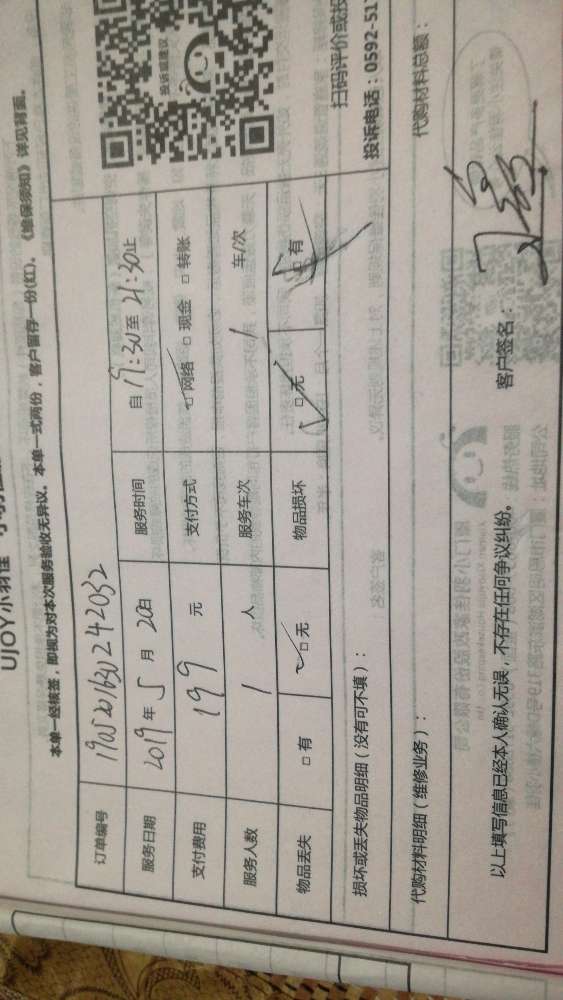 UJOY小羽佳
本单一经核签，即视为对本次服务验收无异议。本单一式两份，客户留存一份(红)。《维保须知》详见背面。
订单编号 1905201630242032
服务日期 2019年5月20日 服务时间 自19:30至21:30止
支付费用 199元 支付方式 网络 □现金 □转账
服务人数 1人 服务车次 1车/次
物品丢失 □有 □无 物品损坏 □无 □有
投诉或建议
扫码评价或投
投诉电话：0592-517
损坏或丢失物品明细（没有可不填）：
代购材料明细（维修业务）： 代购材料总额：
以上填写信息已经本人确认无误，不存在任何争议纠纷。 客户签名：